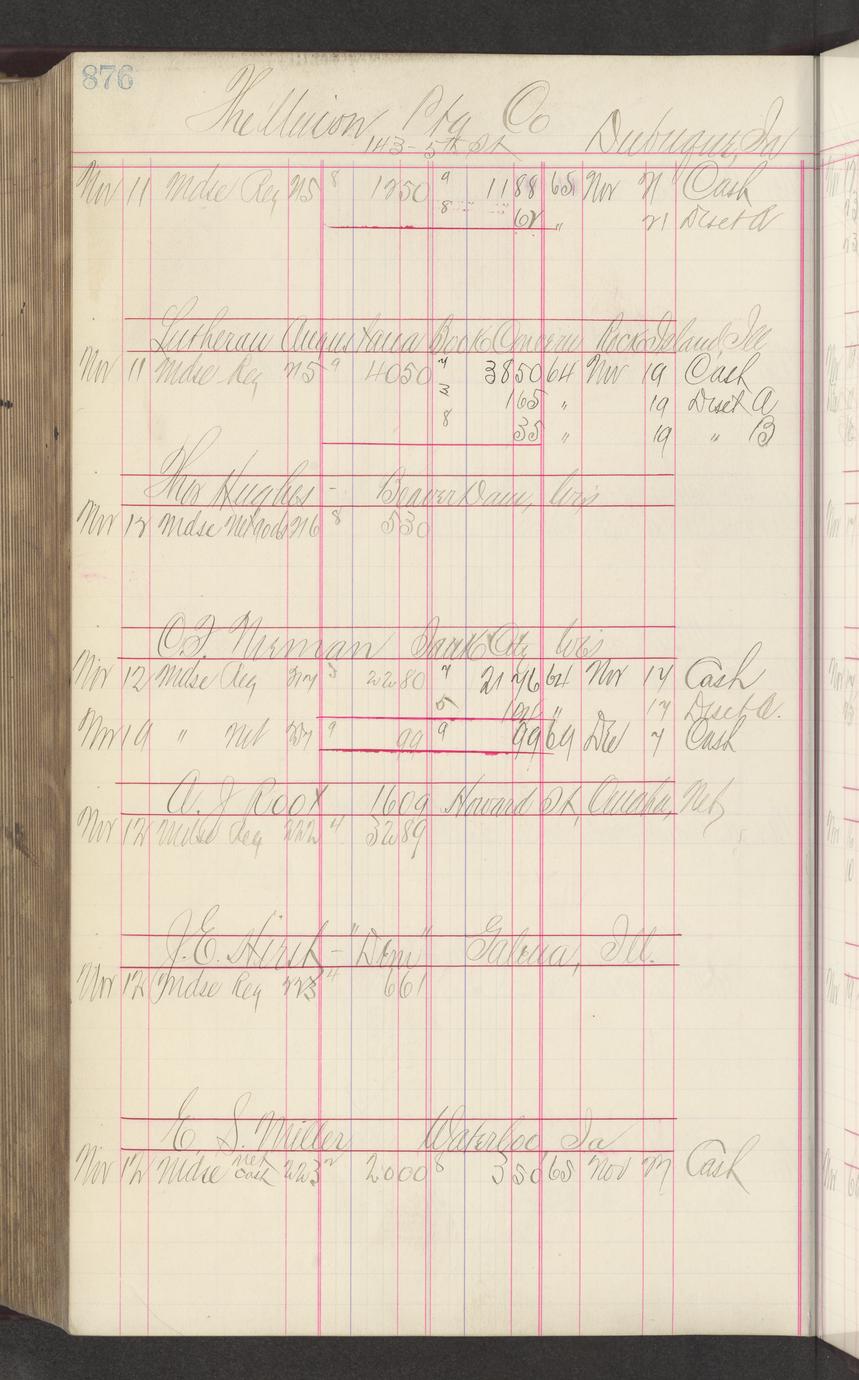 876
The Union Ptg Co Dubuque, Ia
143 - 5th St
Nov 11 Mdse Reg 215 8 1250 9 1188 65 Nov 21 Cash
8 62 " 21 Disct A
Lutheran Augustana Book Concern Rock Island Ill
Nov 11 Mdse Reg 215 9 4050 7 3850 64 Nov 19 Cash
2 165 " 19 Disct A
8 35 " 19 " B
Thos Hughes - Beaver Dam, Wis
Nov 12 Mdse Net 216 8 530
O.F. Nieman Sauk City Wis
Nov 12 Mdse Reg 217 5 2280 7 2176 64 Nov 17 Cash
5 104 " 17 Disct A.
Nov 19 " Net 9 99 9 99 69 Dec 7 Cash
A. J Root 1609 Howard St, Omaha, Neb
Nov 12 Mdse Reg 222 4 3289
J.E. Hirst - "Dom" Galena, Ill.
Nov 12 Mdse Reg 223 4 661
E S. Miller Waterloo Ia
Nov 12 Mdse net cash 223 2 2000 8 350 65 Nov 27 Cash